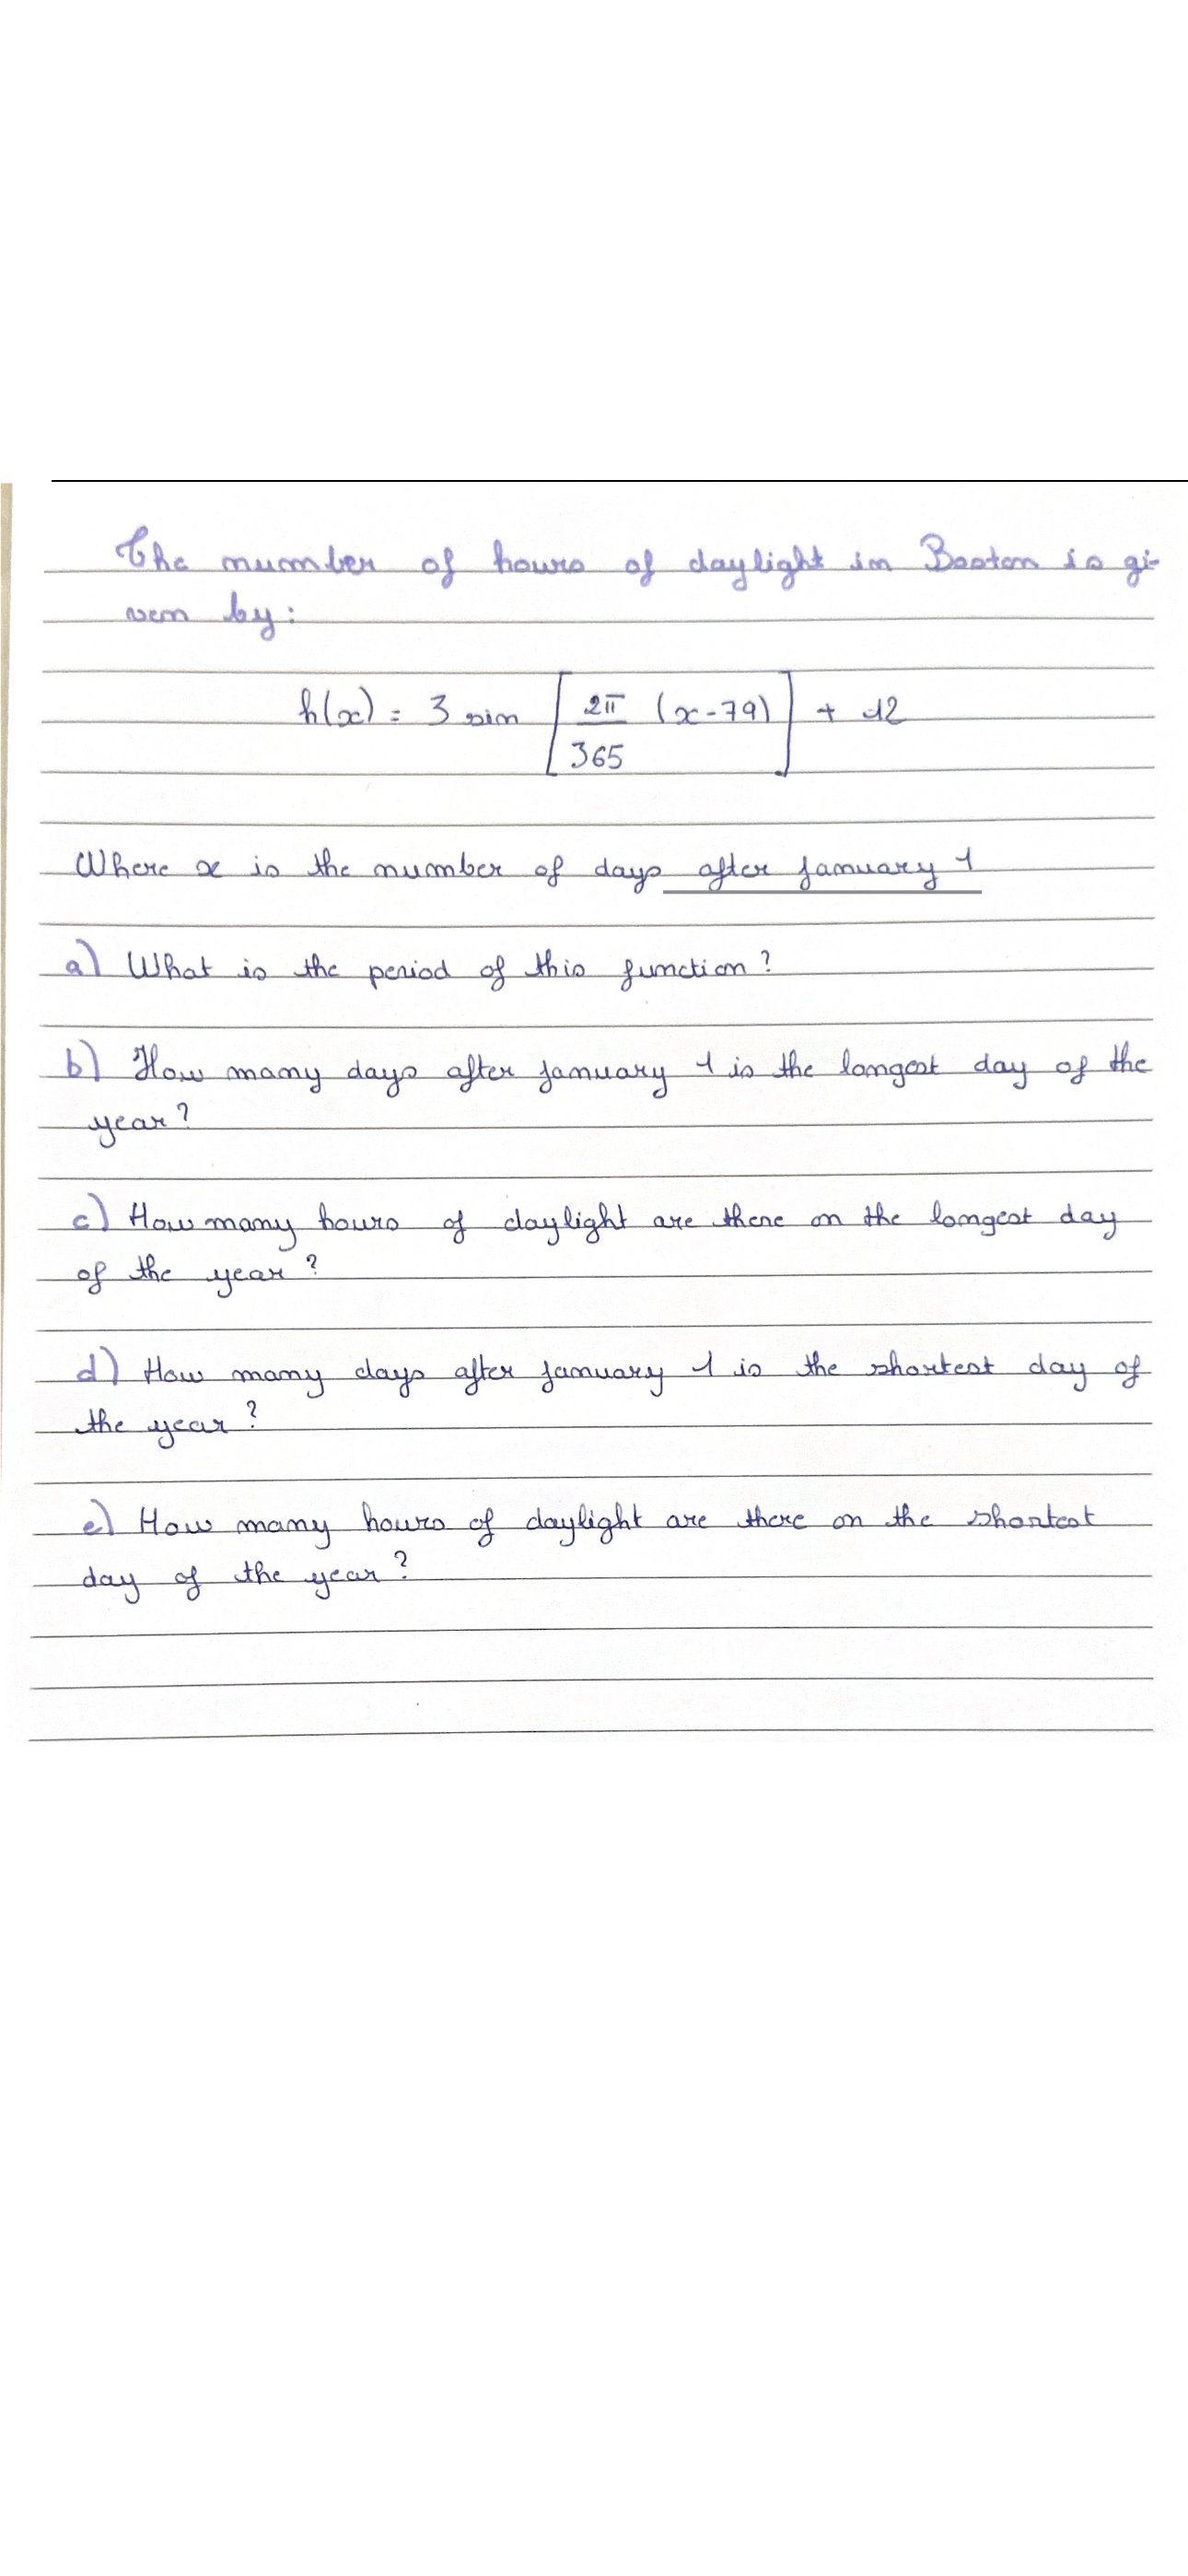 The number of hours of daylight in Boston is gi-
ven by:
h(x) = 3 sin [ 2π/365 (x-79) ] + 12
Where x is the number of days after january 1
a) What is the period of this function?
b) How many days after january 1 is the longest day of the
year?
c) How many hours of daylight are there on the longest day
of the year?
d) How many days after january 1 is the shortest day of
the year?
e) How many hours of daylight are there on the shortest
day of the year?